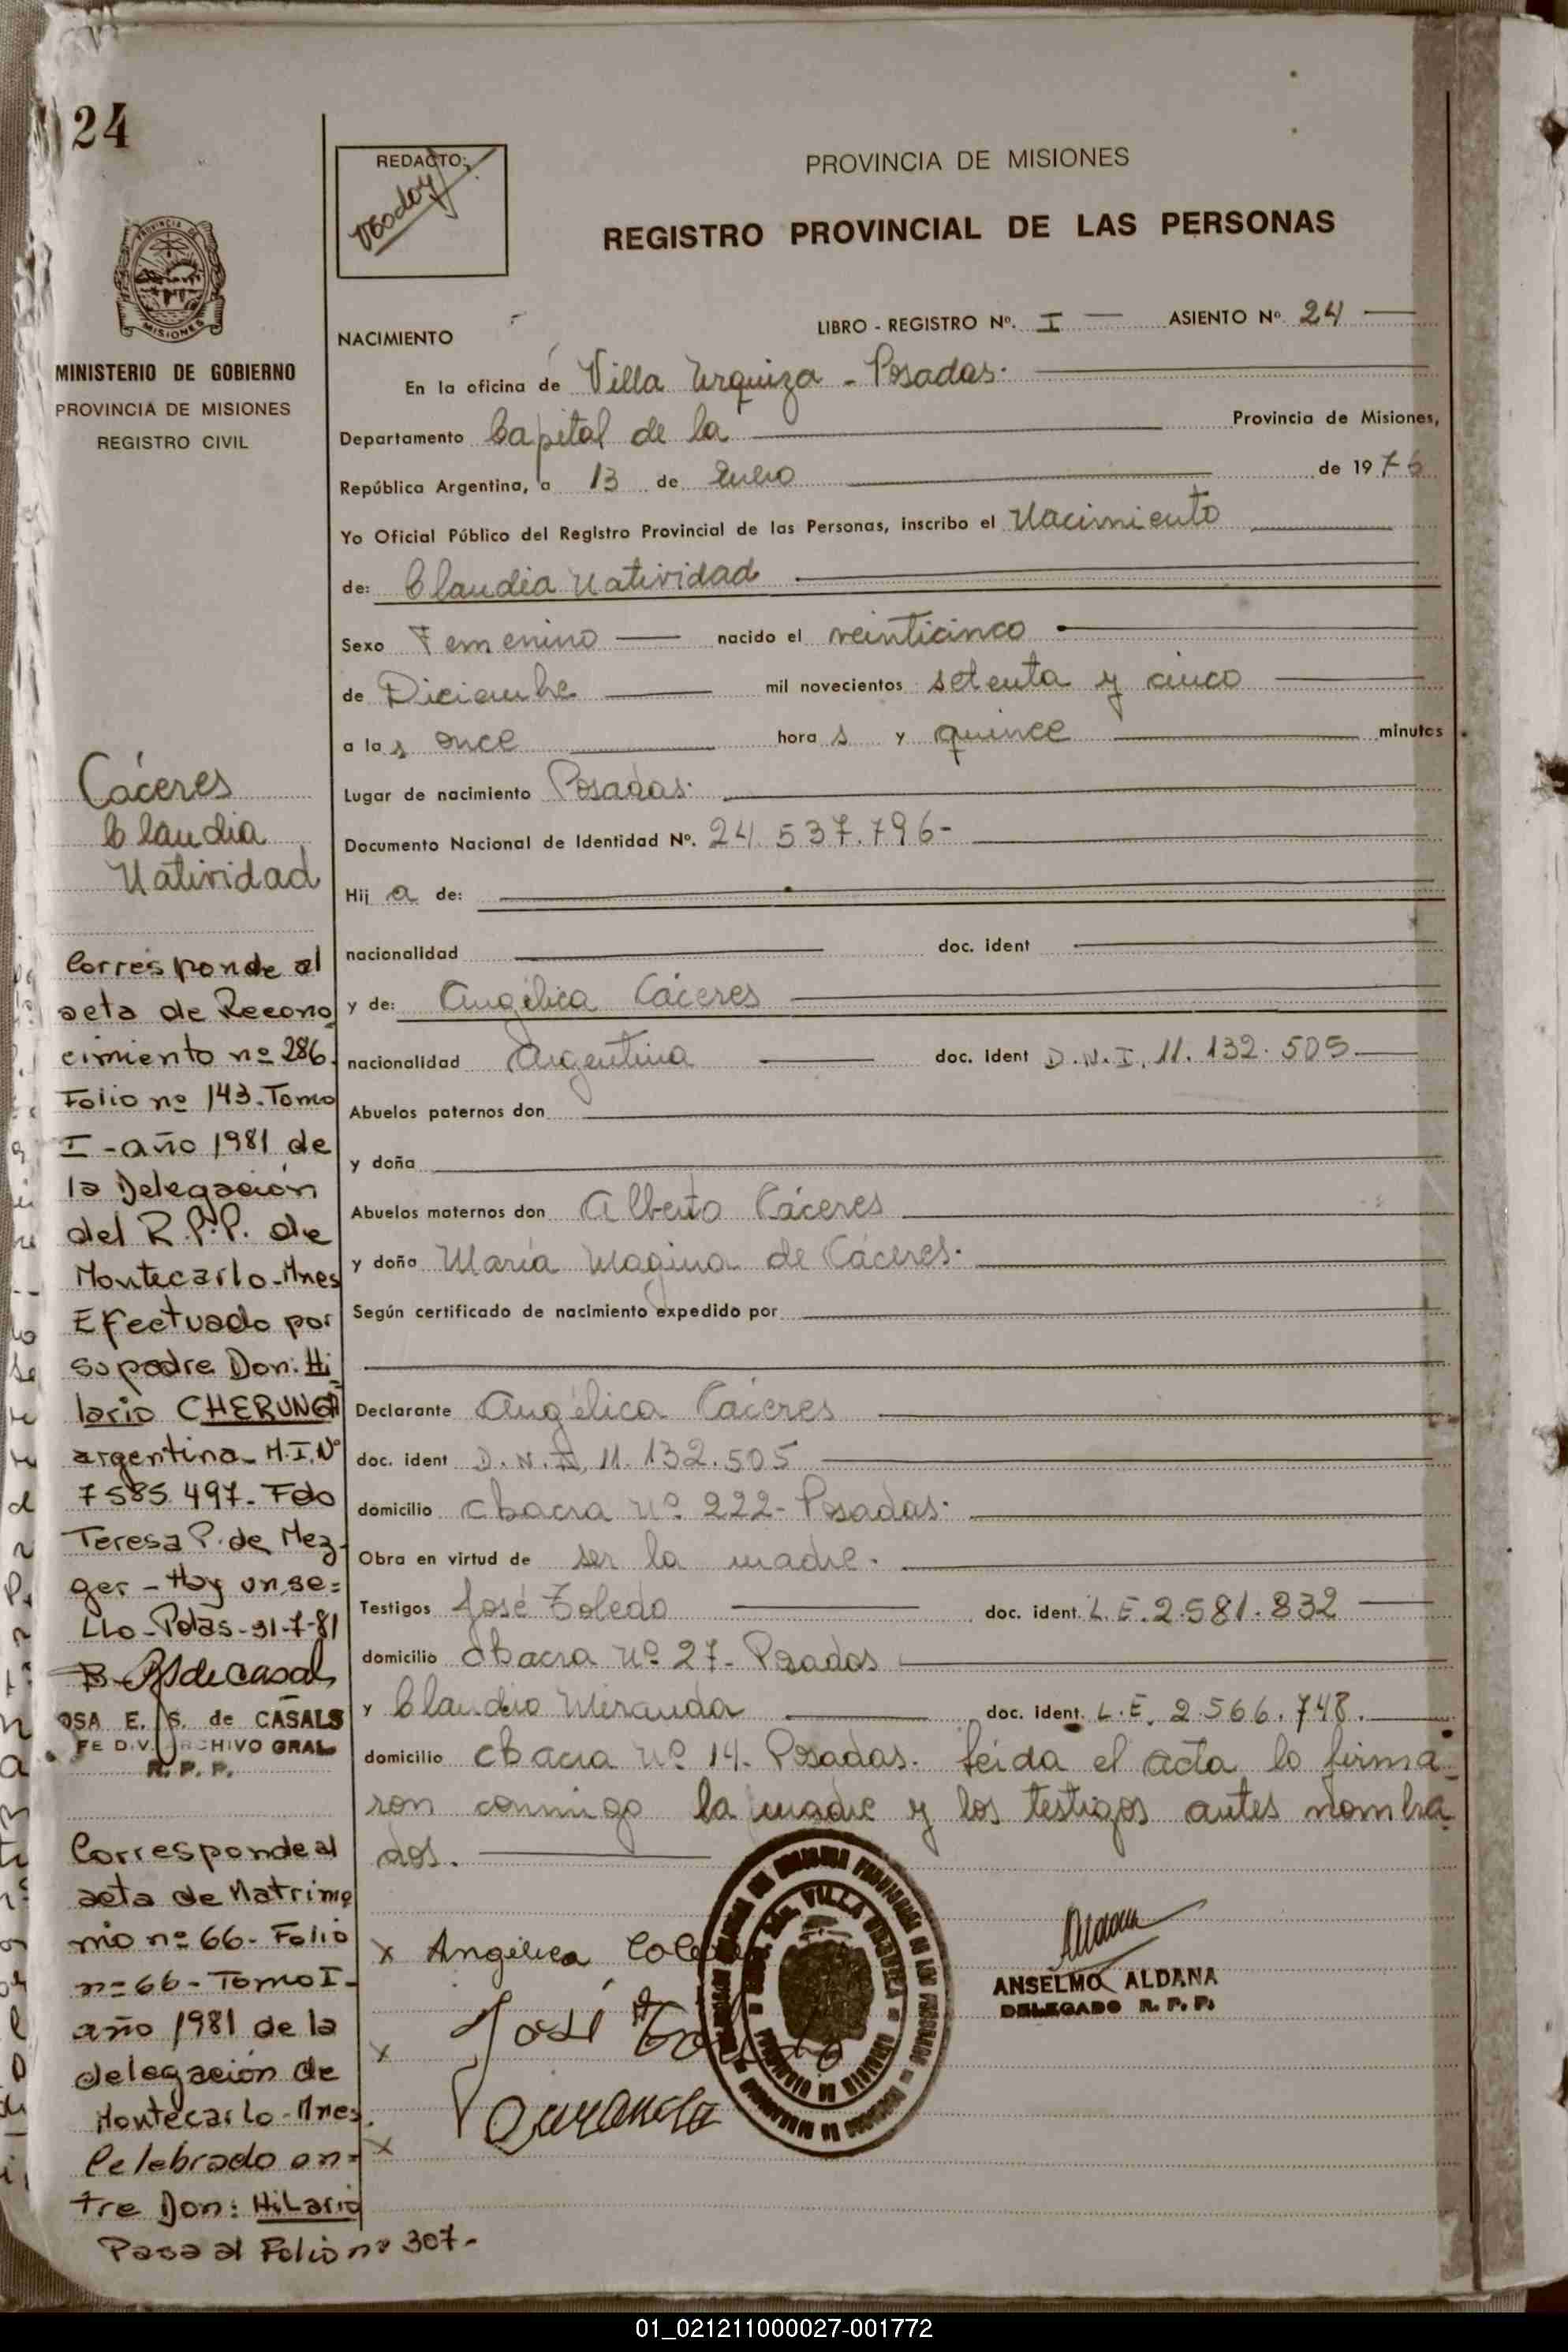 24
REDACTO:
PROVINCIA DE MISIONES
REGISTRO PROVINCIAL DE LAS PERSONAS
PROVINCIA DE
MISIONES
MINISTERIO DE GOBIERNO
PROVINCIA DE MISIONES
REGISTRO CIVIL
NACIMIENTO
LIBRO - REGISTRO Nº. I ASIENTO Nº 24
En la oficina de Villa Urquiza - Posadas.
Departamento Capital de la Provincia de Misiones,
República Argentina, a 13 de Enero de 1976
Yo Oficial Público del Registro Provincial de las Personas, inscribo el Nacimiento
de: Claudia Natividad
Sexo Femenino nacido el veinticinco
de Diciembre mil novecientos setenta y cinco
a las once horas y quince minutos
Lugar de nacimiento Posadas.
Documento Nacional de Identidad Nº. 24.537.796-
Hija de:
nacionalidad doc. ident
y de: Angélica Cáceres
nacionalidad Argentina doc. ident D.N.I. 11.132.505
Abuelos paternos don
y doña
Abuelos maternos don Alberto Cáceres
y doña María Magina de Cáceres.
Según certificado de nacimiento expedido por
Declarante Angélica Cáceres
doc. ident D.N.I. 11.132.505
domicilio chacra Nº 222- Posadas.
Obra en virtud de ser la madre.
Testigos José Toledo doc. ident. L.E. 2.581.832
domicilio chacra Nº 27- Posadas
y Claudio Miranda doc. ident. L.E. 2.566.748.
domicilio chacra Nº 14. Posadas. Leída el acta lo firma-
ron conmigo la madre y los testigos antes nombra-
dos.
x Angélica
x José
x
ANSELMO ALDANA
DELEGADO R. P. P.
Cáceres
Claudia
Natividad
Corresponde al
acta de Recono
cimiento nº 286.
Folio nº 143. Tomo
I - año 1981 de
la Delegación
del R.P.P. de
Montecarlo-Mnes
Efectuado por
su padre Don: Hi-
lario CHERUNGA
argentina- M.I.Nº
7585.497- Fdo
Teresa P. de Mez-
ger - Hay un se=
LLo- Pdas-31-7-81
OSA E. S. de CASALS
FE DIV. ARCHIVO GRAL
R. P. P.
Corresponde al
acta de Matrimo
nio nº 66- Folio
nº 66- Tomo I-
año 1981 de la
delegación de
Montecarlo-Mnes.
Celebrado en=
tre Don: Hilario
Pasa al Folio nº 307-
01_021211000027-001772